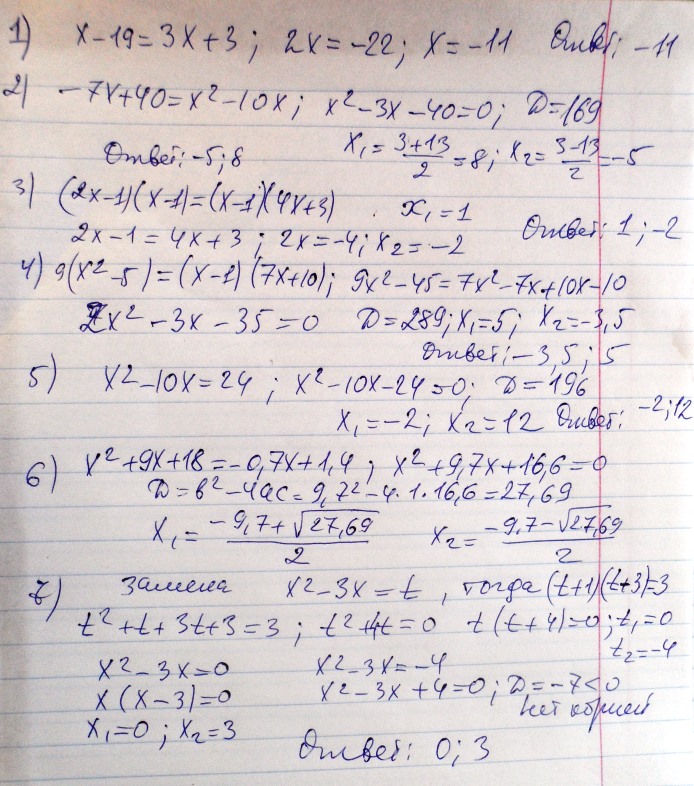 1) x-19=3x+3; 2x=-22; x=-11 Ответ: -11
2) -7x+40=x²-10x; x²-3x-40=0; D=169
Ответ: -5; 8 x₁=(3+13)/2=8; x₂=(3-13)/2=-5
3) (2x-1)(x-1)=(x-1)(4x+3) x₁=1
2x-1=4x+3; 2x=-4; x₂=-2 Ответ: 1; -2
4) 9(x²-5)=(x-1)(7x+10); 9x²-45=7x²-7x+10x-10
2x²-3x-35=0 D=289; x₁=5; x₂=-3,5
Ответ: -3,5; 5
5) x²-10x=24; x²-10x-24=0; D=196
x₁=-2; x₂=12 Ответ: -2; 12
6) x²+9x+18=-0,7x+1,4; x²+9,7x+16,6=0
D=в²-4ас=9,7²-4·1·16,6=27,69
x₁=(-9,7+√27,69)/2 x₂=(-9,7-√27,69)/2
7) замена x²-3x=t, тогда (t+1)(t+3)=3
t²+t+3t+3=3; t²+4t=0 t(t+4)=0; t₁=0
t₂=-4
x²-3x=0 x²-3x=-4
x(x-3)=0 x²-3x+4=0; D=-7<0
нет корней
x₁=0; x₂=3
Ответ: 0; 3